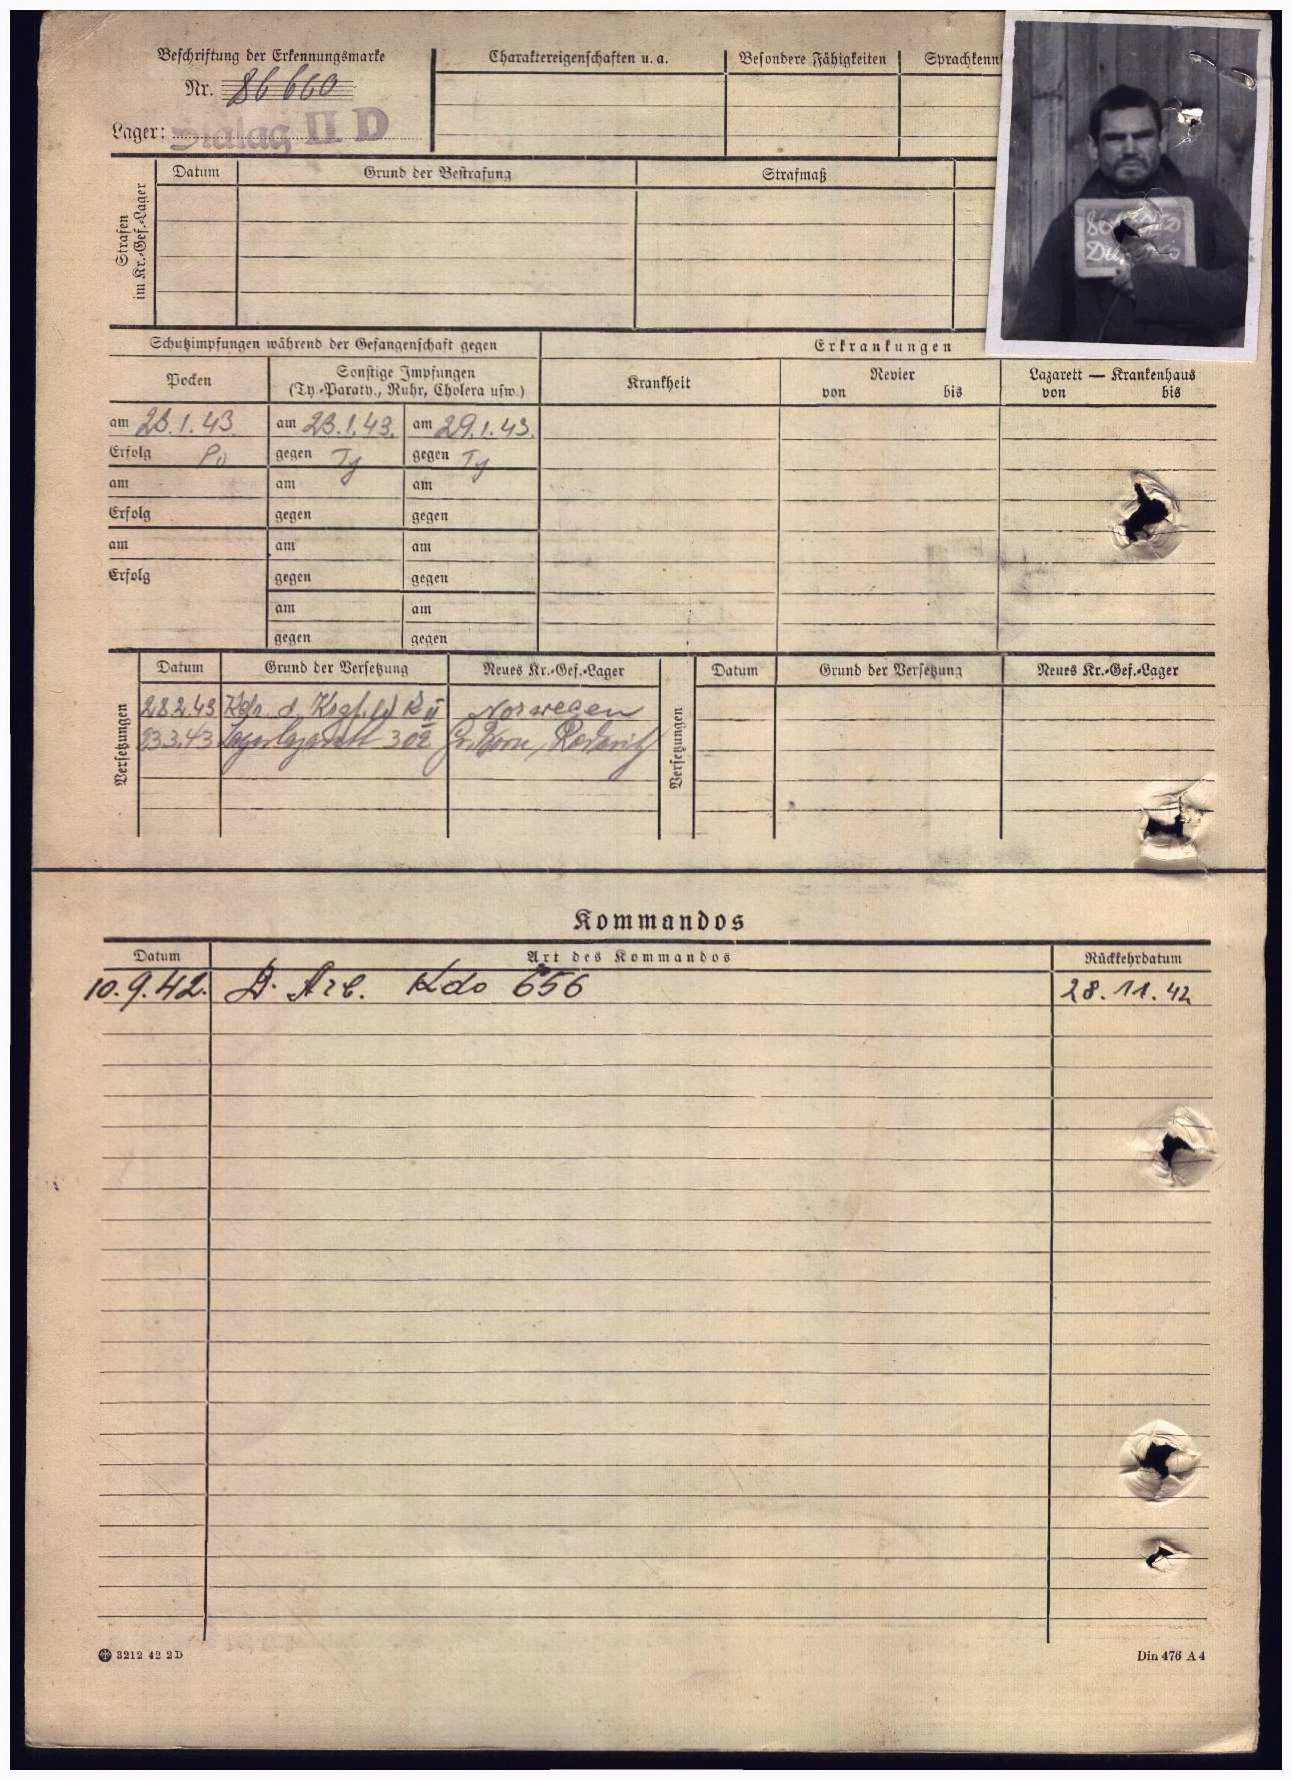 Beschriftung der Erkennungsmarke
Nr. 86 660
Lager: Stalag II D
Charaktereigenschaften u. a.
Besondere Fähigkeiten
Sprachkenn
Strafen
im Kr.-Gef.-Lager
Datum Grund der Bestrafung Strafmaß
Schutzimpfungen während der Gefangenschaft gegen
Erkrankungen
Pocken
Sonstige Impfungen
(Ty.-Paraty., Ruhr, Cholera usw.)
Krankheit
Revier
von bis
Lazarett — Krankenhaus
von bis
am 23.1.43. am 23.1.43. am 29.1.43.
Erfolg gegen Ty gegen Ty
am am am
Erfolg gegen gegen
am am am
Erfolg gegen gegen
am am
gegen gegen
Versetzungen
Datum Grund der Versetzung Neues Kr.-Gef.-Lager
28.2.43 Kdr. d. Krgf. II Norwegen
23.3.43 Lagerlazarett 302
Versetzungen
Datum Grund der Versetzung Neues Kr.-Gef.-Lager
Kommandos
Datum Art des Kommandos Rückkehrdatum
10.9.42. Arb. Kdo 656 28.11.42
3212 42 2D
Din 476 A4